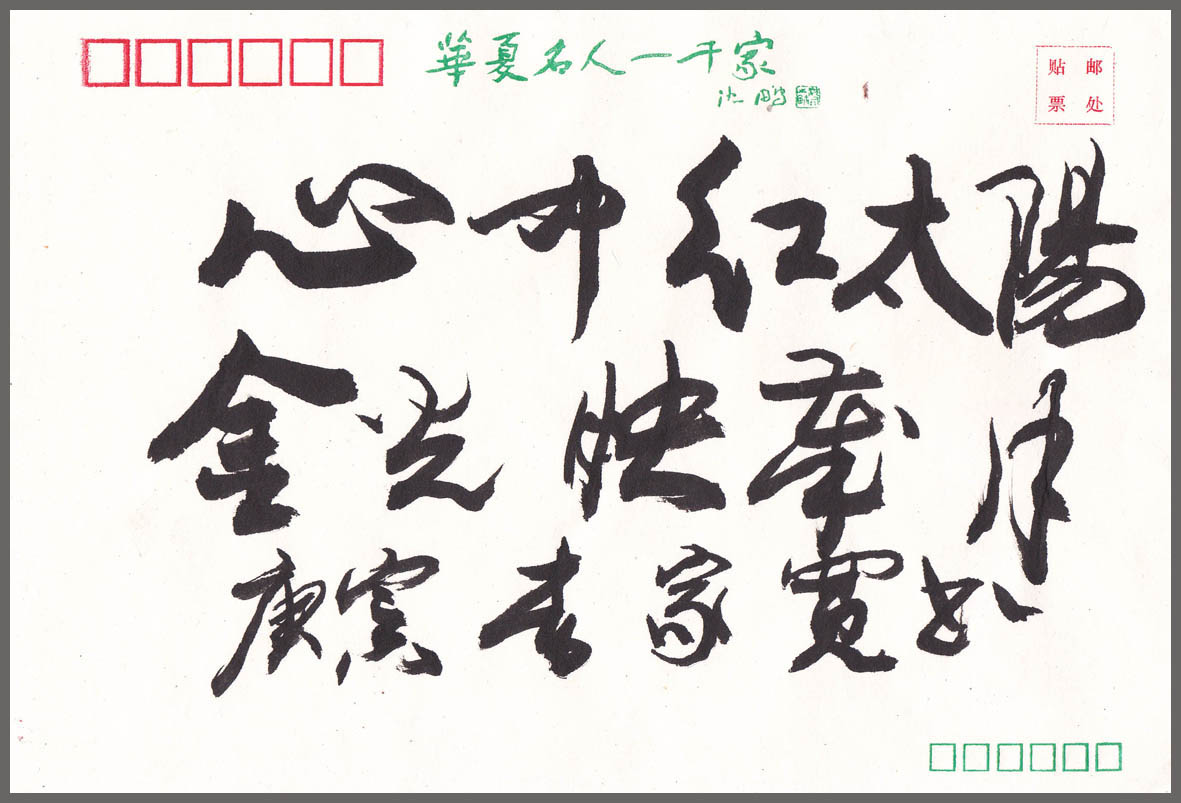 華夏名人一千家
沈鹏
贴邮
票处
心中红太陽
金光映歲月
庚寅 家寬书